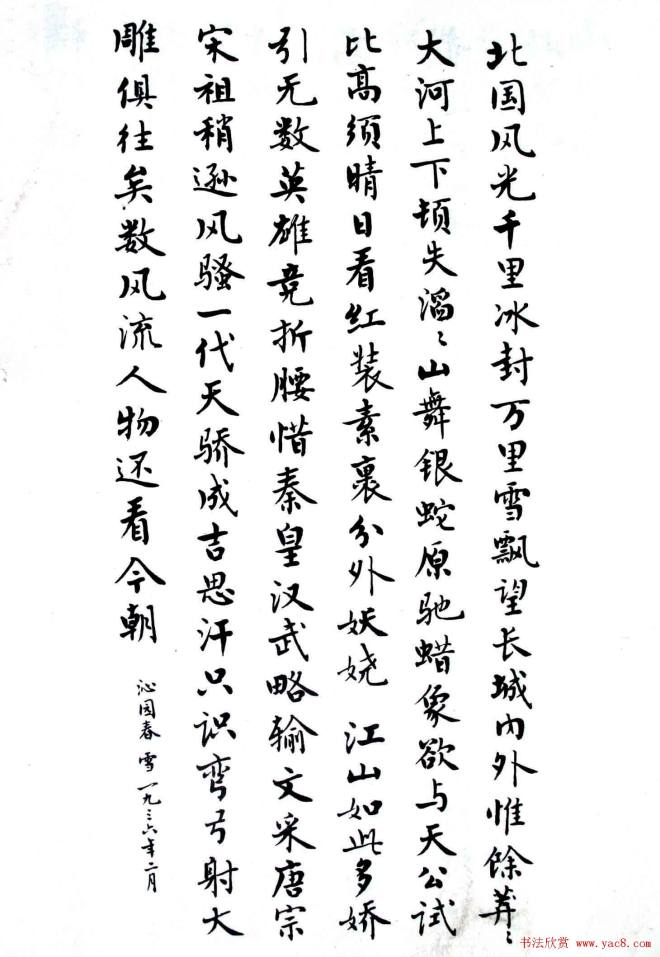 北国风光千里冰封万里雪飘望长城内外惟馀莽〻
大河上下顿失滔〻山舞银蛇原驰蜡象欲与天公试
比高须晴日看红装素裹分外妖娆 江山如此多娇
引无数英雄竞折腰惜秦皇汉武略输文采唐宗
宋祖稍逊风骚一代天骄成吉思汗只识弯弓射大
雕俱往矣数风流人物还看今朝
沁园春 雪 一九三六年二月
书法欣赏 www.yac8.com